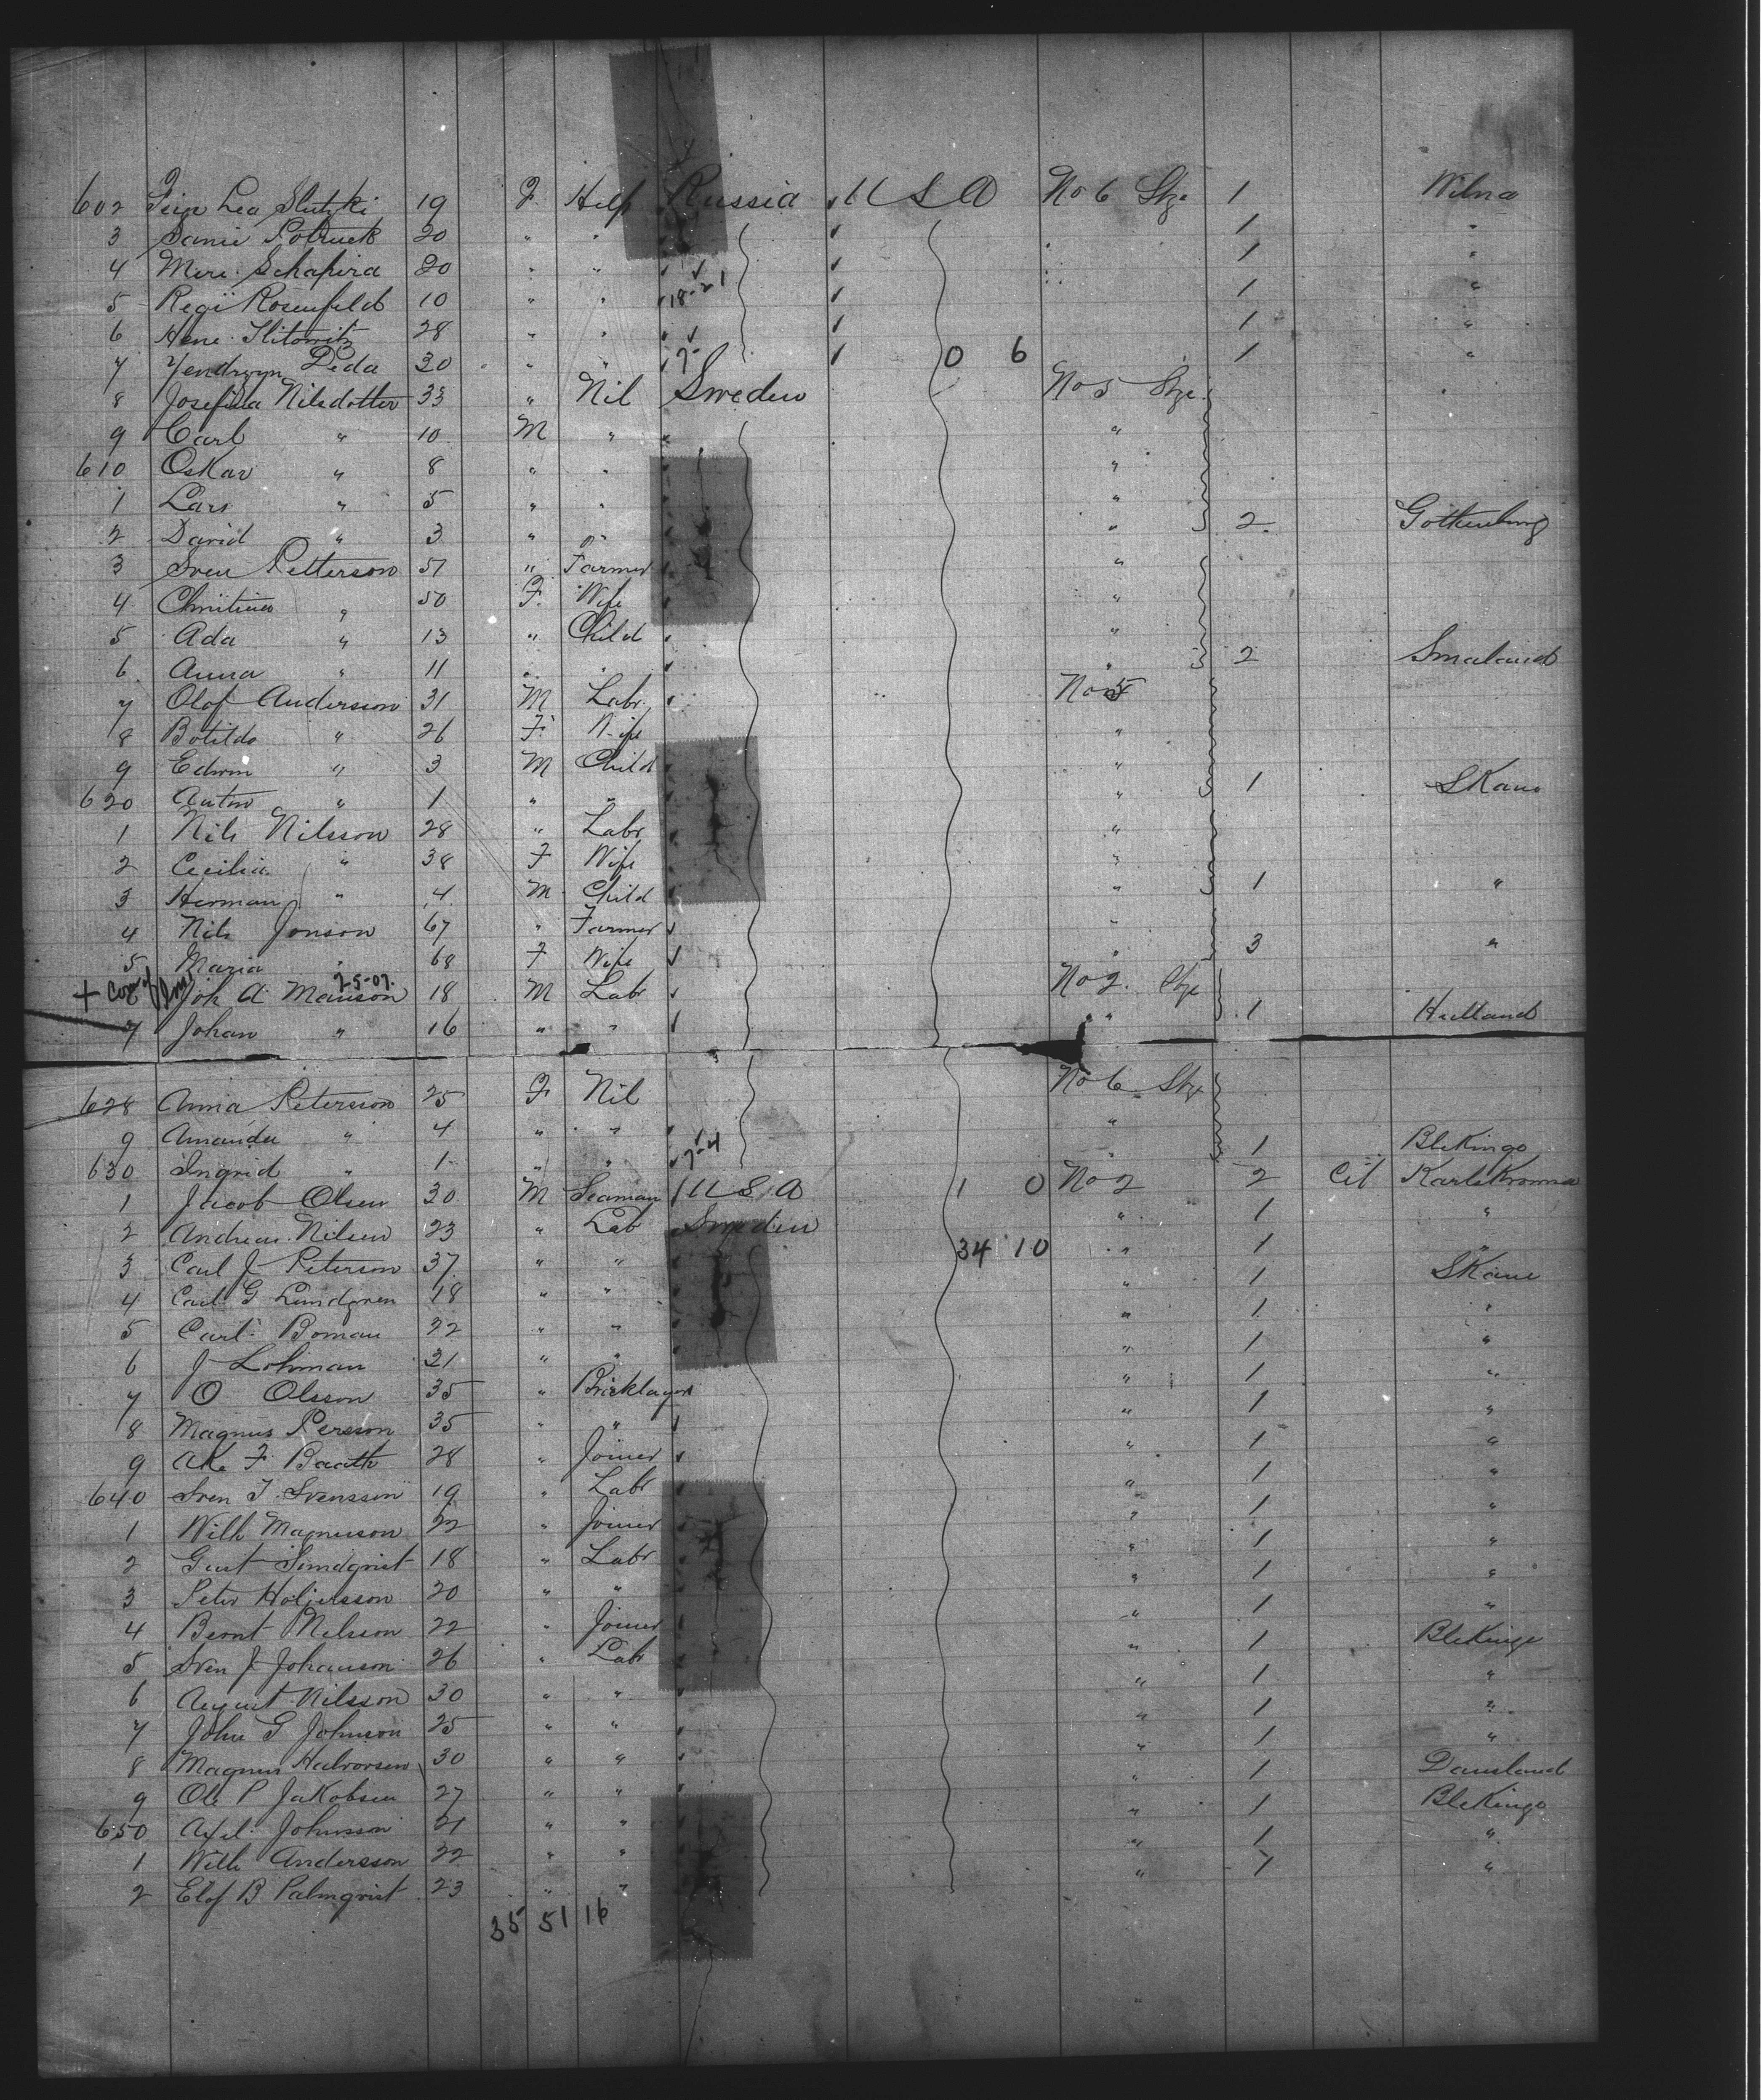 602 Feige Lea Slutzki 19 F Help Russia U S A No 6 Stge 1 Wilna
3 Samie Potruck 20 " " 1 "
4 Mere Schapira 20 " " 1 "
5 Regi Rosenfeld 10 " " 18-21 1 "
6 Hene 28 " " 1 "
7 Yendrzyn Leda 30 " " 0 6 1 "
8 Josefina Nilsdotter 33 " Nil Sweden No 5 Stge
9 Carl " 10 M " "
610 Oskar " 8 " " "
1 Lars " 5 " " "
2 David " 3 " " " 2 Gothenburg
3 Sven Petterson 51 " Farmer "
4 Christina " 50 F Wife "
5 Ada " 13 " Child "
6 Anna " 11 " " " 2 Smaland
7 Olof Anderson 31 M Labr No 5
8 Botilda " 26 F Wife "
9 Edwin " 3 M Child "
620 Anton " 1 " " " 1 Skane
1 Nils Nilsson 28 " Labr "
2 Cecilia " 38 F Wife "
3 Herman " 4 M Child " 1 "
4 Nils Jonson 67 " Farmer "
5 Maria " 68 F Wife " 3 "
+ 2-5-07.
Joh A Manson 18 M Labr No 2. Stge
7 Johan " 16 " " " 1 Halland
628 Anna Peterson 25 F Nil No 6 Stge
9 Amanda " 4 " " "
630 Ingrid " 1 " " " 1 Blekinge
1 Jacob Olsen 30 M Seaman U S A 1 0 No 2 2 Cit Karlskrona
2 Andreas Nilsen 23 " Labr Sweden " 1 "
3 Carl J Peterson 37 " " 34 10 " 1 "
4 Carl G Lundgren 18 " " " 1 Skane
5 Carl Boman 22 " " " 1 "
6 J Lohman 21 " " " 1 "
7 O Olsson 35 " Bricklayer " 1 "
8 Magnus Person 35 " " " 1 "
9 Ake F Baath 28 " Joiner " 1 "
640 Sven T Svensson 19 " Labr " 1 "
1 Wilh Magnuson 22 " Joiner " 1 "
2 Gust 18 " Labr " 1 "
3 Peter Holjersson 20 " " " 1 "
4 Bernt Nelsson 22 " Joiner " 1 "
5 Sven J Johanson 26 " Labr " 1 Blekinge
6 August Nilsson 30 " " " 1 "
7 John G Johnson 25 " " " 1 "
8 Magnus Halvorsen 30 " " " 1 "
9 Ole P Jakobsen 27 " " " 1 Dansland
650 Axel Johnsson 21 " " " 1 Blekinge
1 Wilh Andersson 22 " " " 1 "
2 Elof B Palmqvist 23 " " " 1 "
35 51 16